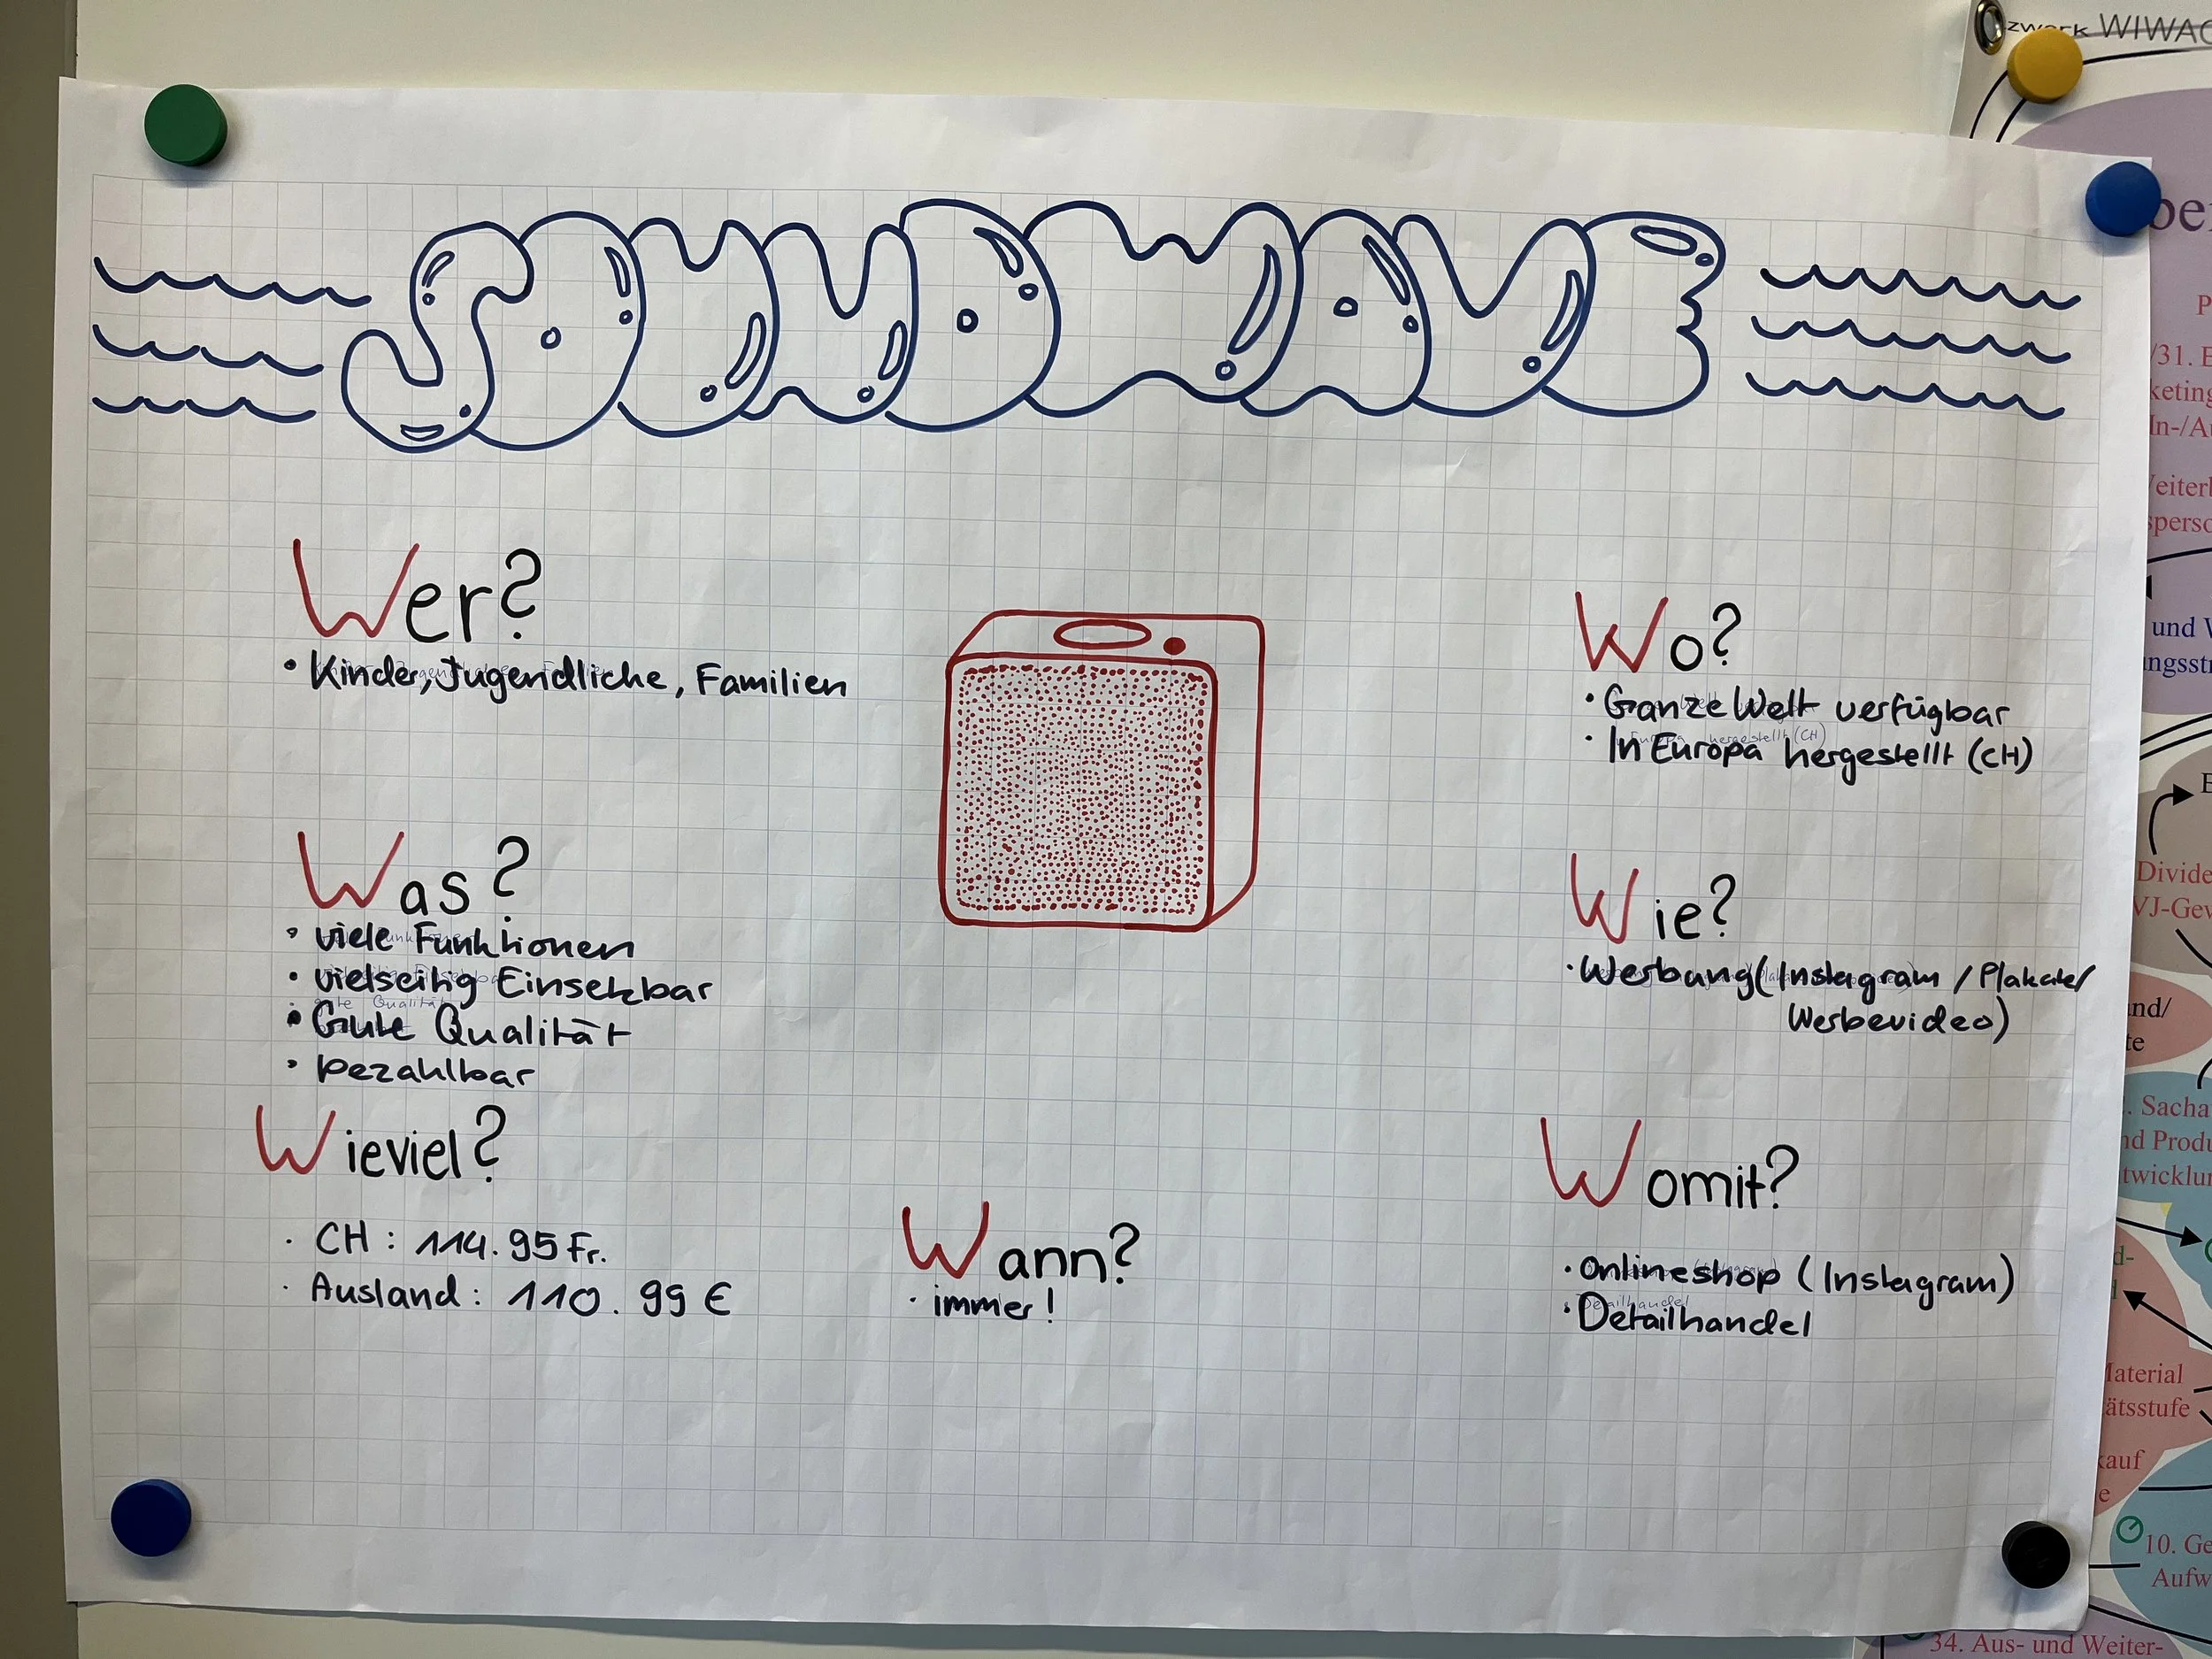 SOUNDWAVE
Wer?
• Kinder, Jugendliche, Familien
Was?
• viele Funktionen
• vielseitig Einsetzbar
• Gute Qualität
• bezahlbar
Wieviel?
• CH: 114.95 Fr.
• Ausland: 110.99 €
Wann?
• immer!
Wo?
• Ganze Welt verfügbar
• In Europa hergestellt (CH)
Wie?
• Werbung (Instagram / Plakate/
Werbevideo)
Womit?
• Onlineshop (Instagram)
• Detailhandel
WIWAG
P
/31. E
keting
In-/Au
Weiterb
sperso
und W
ngsstr
E
Divide
VJ-Gew
und/
te
. Sacha
nd Produ
twicklun
Material
ätsstufe
kauf
e
10. Ge
Aufw
34. Aus- und Weiter-